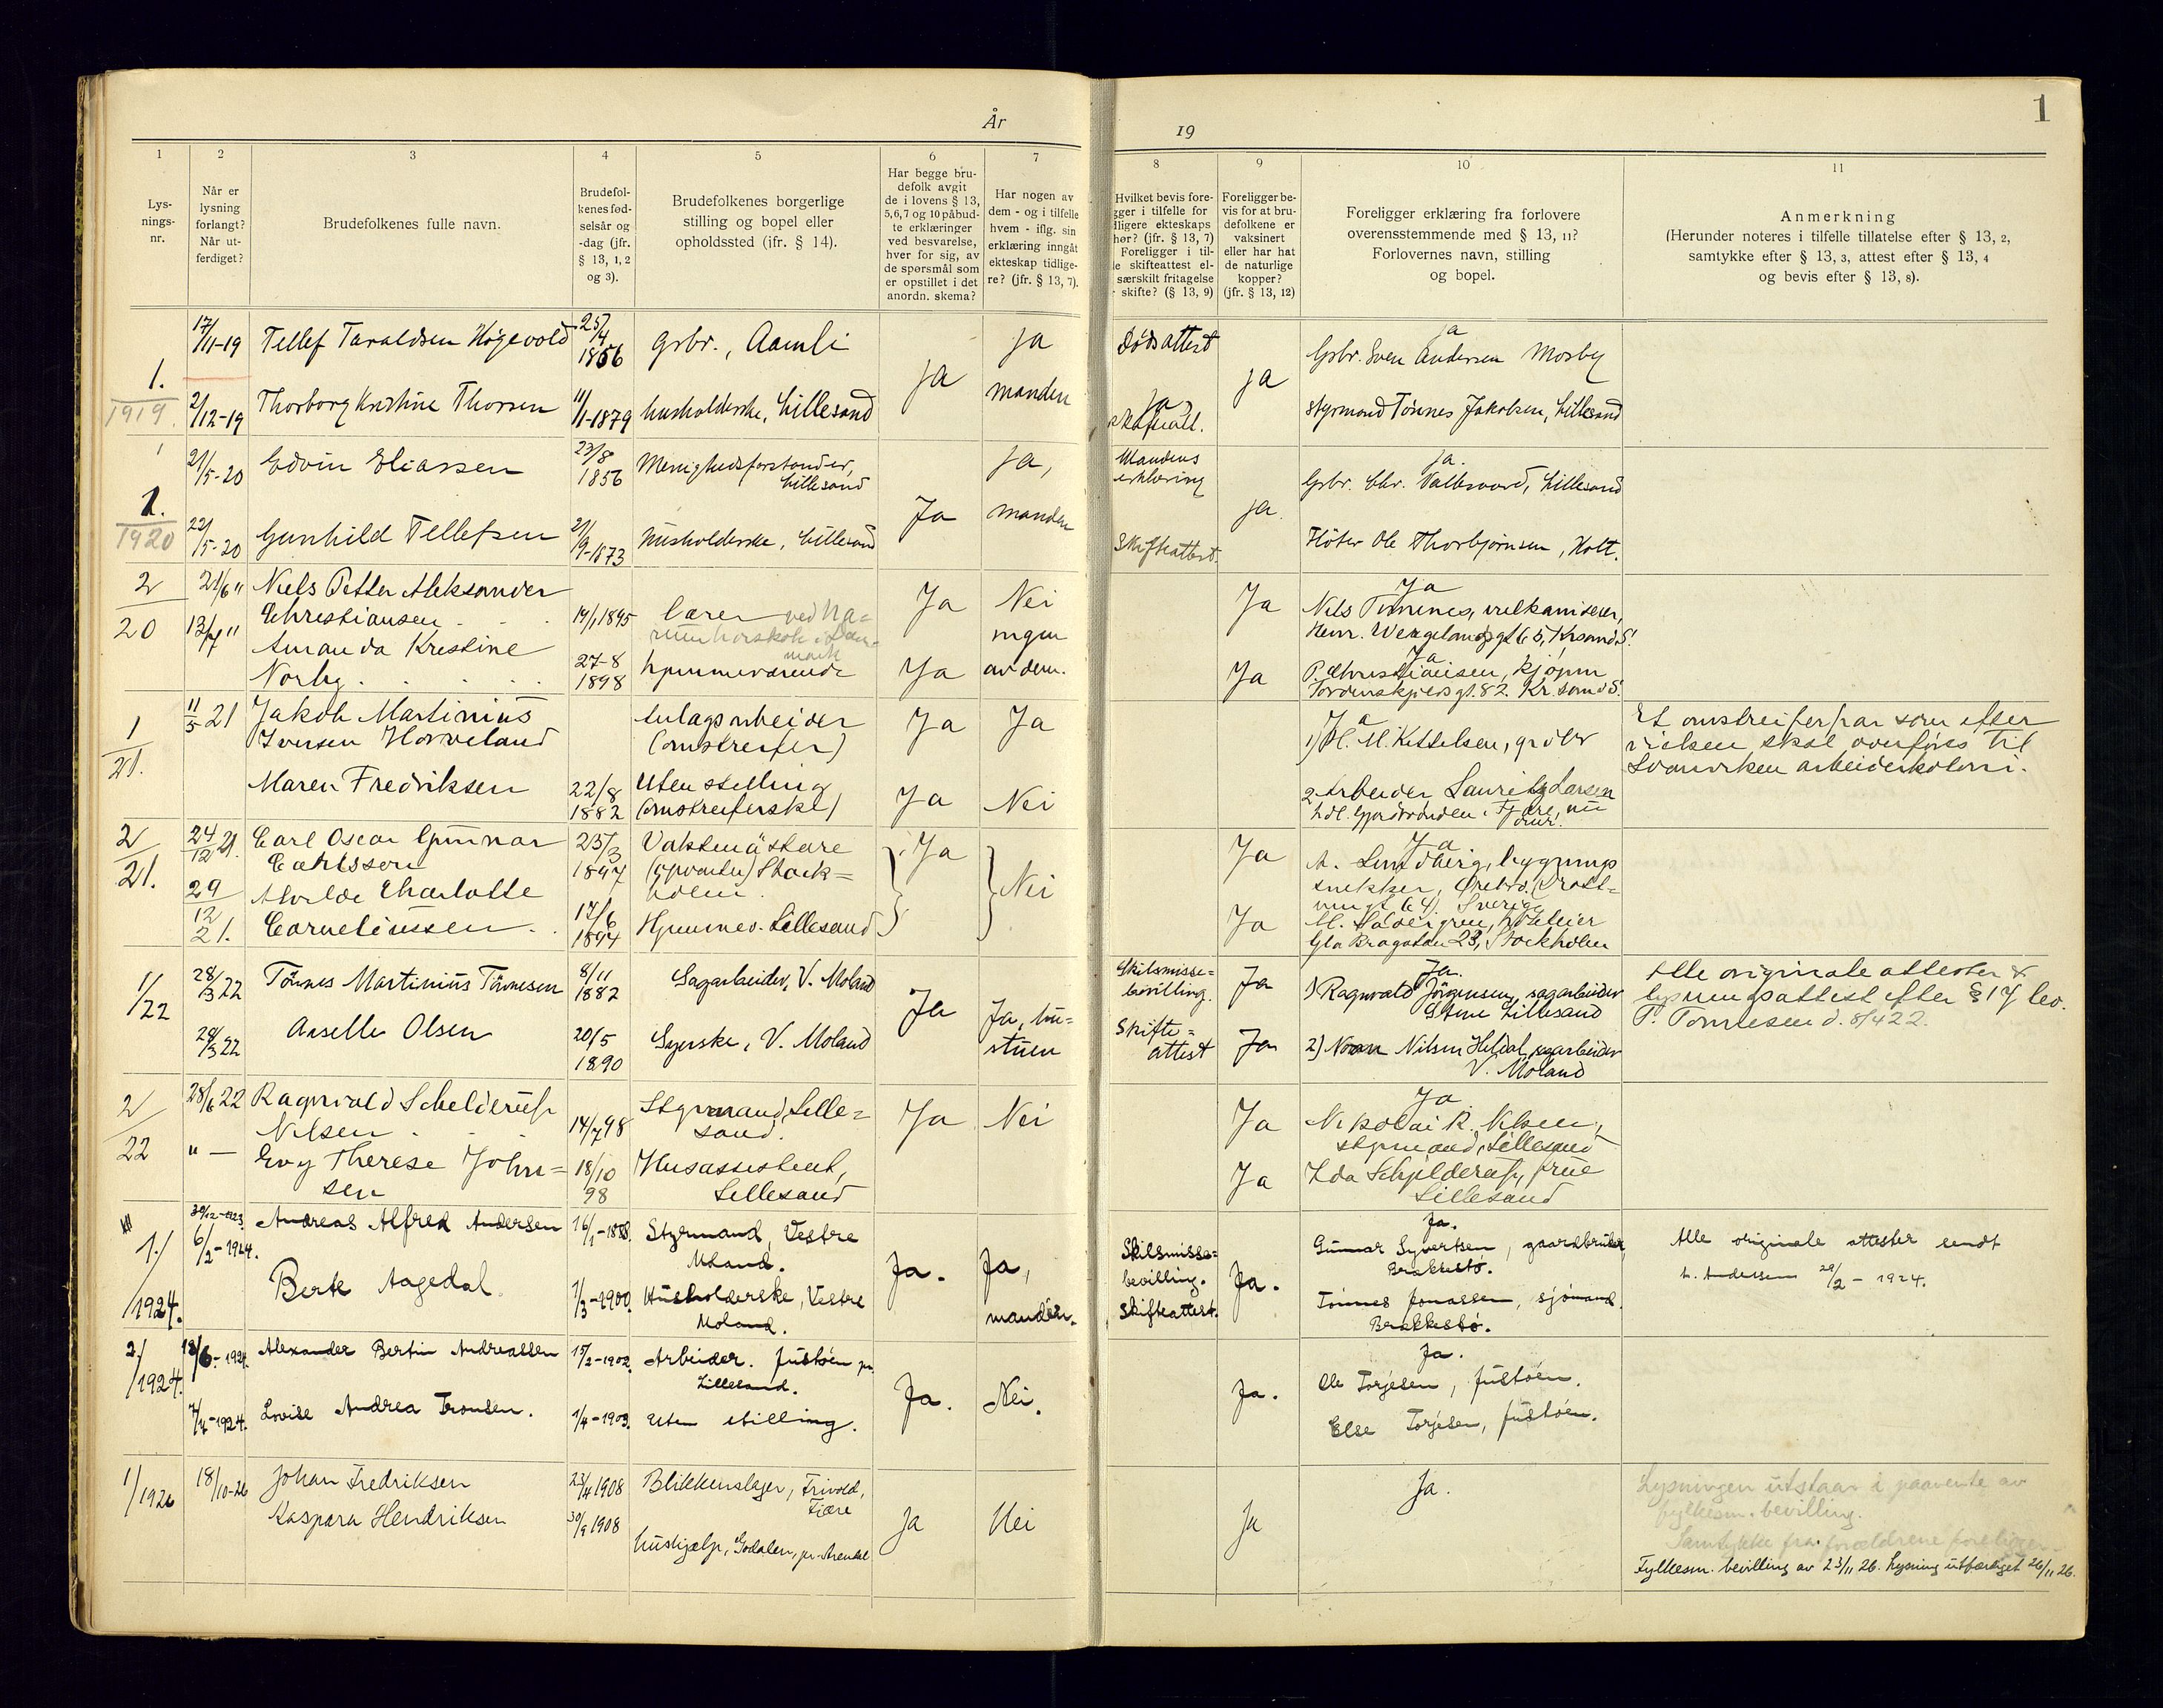 År
19
1
1
Lys-
nings-
nr.
2
Når er
lysning
forlangt?
Når ut-
ferdiget?
3
Brudefolkenes fulle navn.
4
Brudefol-
kenes fød-
selsår og
-dag (jfr.
§ 13, 1, 2
og 3).
5
Brudefolkenes borgerlige
stilling og bopel eller
opholdssted (jfr. § 14).
6
Har begge bru-
defolk avgit
de i lovens § 13,
5, 6, 7 og 10 påbud-
te erklæringer
ved besvarelse,
hver for sig, av
de spørsmål som
er opstillet i det
anordn. skema?
7
Har nogen av
dem - og i tilfelle
hvem - iflg. sin
erklæring inngåt
ekteskap tidlige-
re? (jfr. § 13, 7).
8
Hvilket bevis fore-
gger i tilfelle for
lligere ekteskaps
hør? (jfr. § 13, 7)
Foreligger i til-
le skifteattest el-
særskilt fritagelse
r skifte? (§ 13, 9)
9
Foreligger be-
vis for at bru-
defolkene er
vaksinert
eller har hat
de naturlige
kopper?
(jfr. § 13, 12)
10
Foreligger erklæring fra forlovere
overensstemmende med § 13, 11?
Forlovernes navn, stilling
og bopel.
11
Anmerkning
(Herunder noteres i tilfelle tillatelse efter § 13, 2,
samtykke efter § 13, 3, attest efter § 13, 4
og bevis efter § 13, 8).
1.
1919
17/11-19 Tellef Taraldsen Høgevold 25/4 1856 Grbr., Aamli
2/12-19 Thorborg Kristine Thorsen 11/1-1879 husholderske, Lillesand
Ja
ja
manden
Dødsattest
ja
ja
ja
Grbr. Sven Andersen Mosby
Styrmand Tønnes Jakobsen, Lillesand
1.
1920
21/5-20 Edvin Eliassen 23/8 1856 Menighedsforstander,
Lillesand
22/5-20 Gunhild Tellefsen 21/9-1873 Husholderske, Lillesand
Ja
ja,
manden
Mandens
erklæring
Skifteattest.
ja.
ja.
Grbr. Chr. Vallesverd, Lillesand
Ole Thorbjørnsen, Holt.
2
20
21/6 " Niels Petter Aleksander
Christiansen 14/1 1895 lærer ved
Ja Nei
13/7 " Amanda Kristine
Norby 27-8 1898 hjemmeværende
Ja
ingen
av dem.
Ja
Ja
Ja
Nils Tønnes, vulkaniserer,
Henr. Wergelandsgt 65, Krsand S.
Ja
P. Christiansen, kjøpm
Tordenskjoldsgt. 82 Kr.sand S.
1
21.
11/5 21 Jakob Martinius
Iversen Horveland
Anlagsarbeider
(omstreifer)
Ja Ja
Maren Fredriksen 22/8 1882 Uten stilling
(omstreiferske)
Ja Nei
Ja
1) M. Kittelsen,
2 Arbeider Lauritz Larsen
Et omstreiferpar som efter
vielsen skal overføres til
Svanviken arbeiderkoloni.
2
21.
24/12 21. Carl Oscar Gunnar
Carlsson 23/3 1897 Vaktmästare
Stock=
holm
29/12 21. Alvilde Charlotte
Corneliussen 17/6 1894 Hjemmev. Lillesand
Ja
Nei
Ja
Ja
Ja
A. Lindberg, bygnings
snekker, Örebro.
Sverige
Stockholm
1/22
28/3 22 Tønnes Martinius Tønnesen 8/11 1882 Sagarbeider, V. Moland
29/3 22 Anselle Olsen 20/5 1890 Syerske, V. Moland
Ja
Ja, hu-
struen
Skilsmisse=
bevilling.
Skifte=
attest
Ja
Ja
Ja.
1) Ragnvald Jörgensen, sagarbeider
Lillesand
2) Nilsen Heldal, sagarbeider
V. Moland
Alle originale attester &
lysningsattest efter § 17 lev.
T. Tønnesen d. 8/4 22.
2/
22
28/6 22 Ragnvald Schelderup
Nilsen 14/7 98 Styrmand, Lille=
sand.
Ja Nei
" — Evy Therese John=
sen 18/10 98 Husassistent,
Lillesand
Ja
Ja
Ja
Nikolai R. Nilsen,
styrmand, Lillesand
Ida Schjelderup, frue
Lillesand
1./
1924.
30/12-1923. Andreas Alfred Andersen 16/1-1888. Styrmand, Vestre
Moland.
6/2-1924.
Berte Aagedal 7/3-1900. Husholderske, Vestre
Moland.
Ja.
Ja,
manden.
Skilsmisse-
bevilling.
Skifteattest.
Ja.
Ja.
Gunnar Syvertsen, gaardbruker
Brækkestø.
Tønnes Jonassen, sjömand.
Brækkestø.
Alle originale attester sendt
h. Andersen 29/2 - 1924.
2./
1924.
Alexander Bertin Andreassen 15/2-1902. Arbeider. Justøen pr.
Lillesand.
Lovise Andrea Tronsen. 1/4-1903. Uten stilling.
Ja.
Nei.
Ja.
Ja.
Ole Torjesen, Justøen.
Else Torjesen, Justøen.
1/1926
18/10-26 Johan Fredriksen 23/4 1908 Blikkenslager, Frivold,
Fjære
Kaspara Hendriksen 30/9 1908
Hushjælp, Godalen, pr. Arendal
Ja
Nei
Ja
Ja.
Lysningen utstaar i paavente av
fylkesm. bevilling.
Samtykke fra forældrene foreligger.
Fylkesm. bevilling av 23/11 26. Lysning utfærdiget 26/11 26.